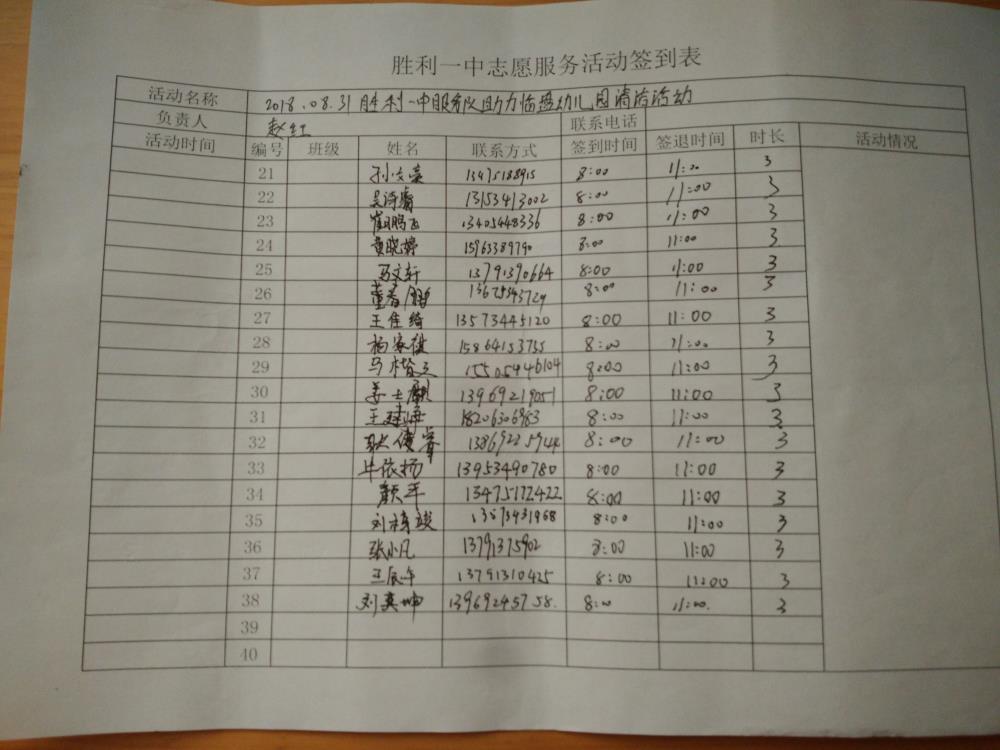 胜利一中志愿服务活动签到表
活动名称 2018.08.31胜利一中服务队助力临盘幼儿园清洁活动
负责人 赵红 联系电话
活动时间 编号 班级 姓名 联系方式 签到时间 签退时间 时长 活动情况
21 孙文荣 13475188915 8:00 11:00 3
22 13153413002 8:00 11:00 3
23 崔鹏飞 13405448336 8:00 11:00 3
24 黄晓婷 15963389790 8:00 11:00 3
25 马文轩 13791390664 8:00 11:00 3
26 董春鹏 8:00 11:00 3
27 王佳绮 13573445120 8:00 11:00 3
28 杨家祺 15864153755 8:00 11:00 3
29 马楷文 15505446104 8:00 11:00 3
30 姜士 13969219051 8:00 11:00 3
31 王建海 18206306983 8:00 11:00 3
32 耿俊睿 13869225944 8:00 11:00 3
33 毕依扬 13953490780 8:00 11:00 3
34 颜平 13475172422 8:00 11:00 3
35 刘 13573431968 8:00 11:00 3
36 张小凡 13791375902 8:00 11:00 3
37 王辰午 13791310425 8:00 11:00 3
38 刘奕坤 13969245758. 8:00 11:00. 3
39
40